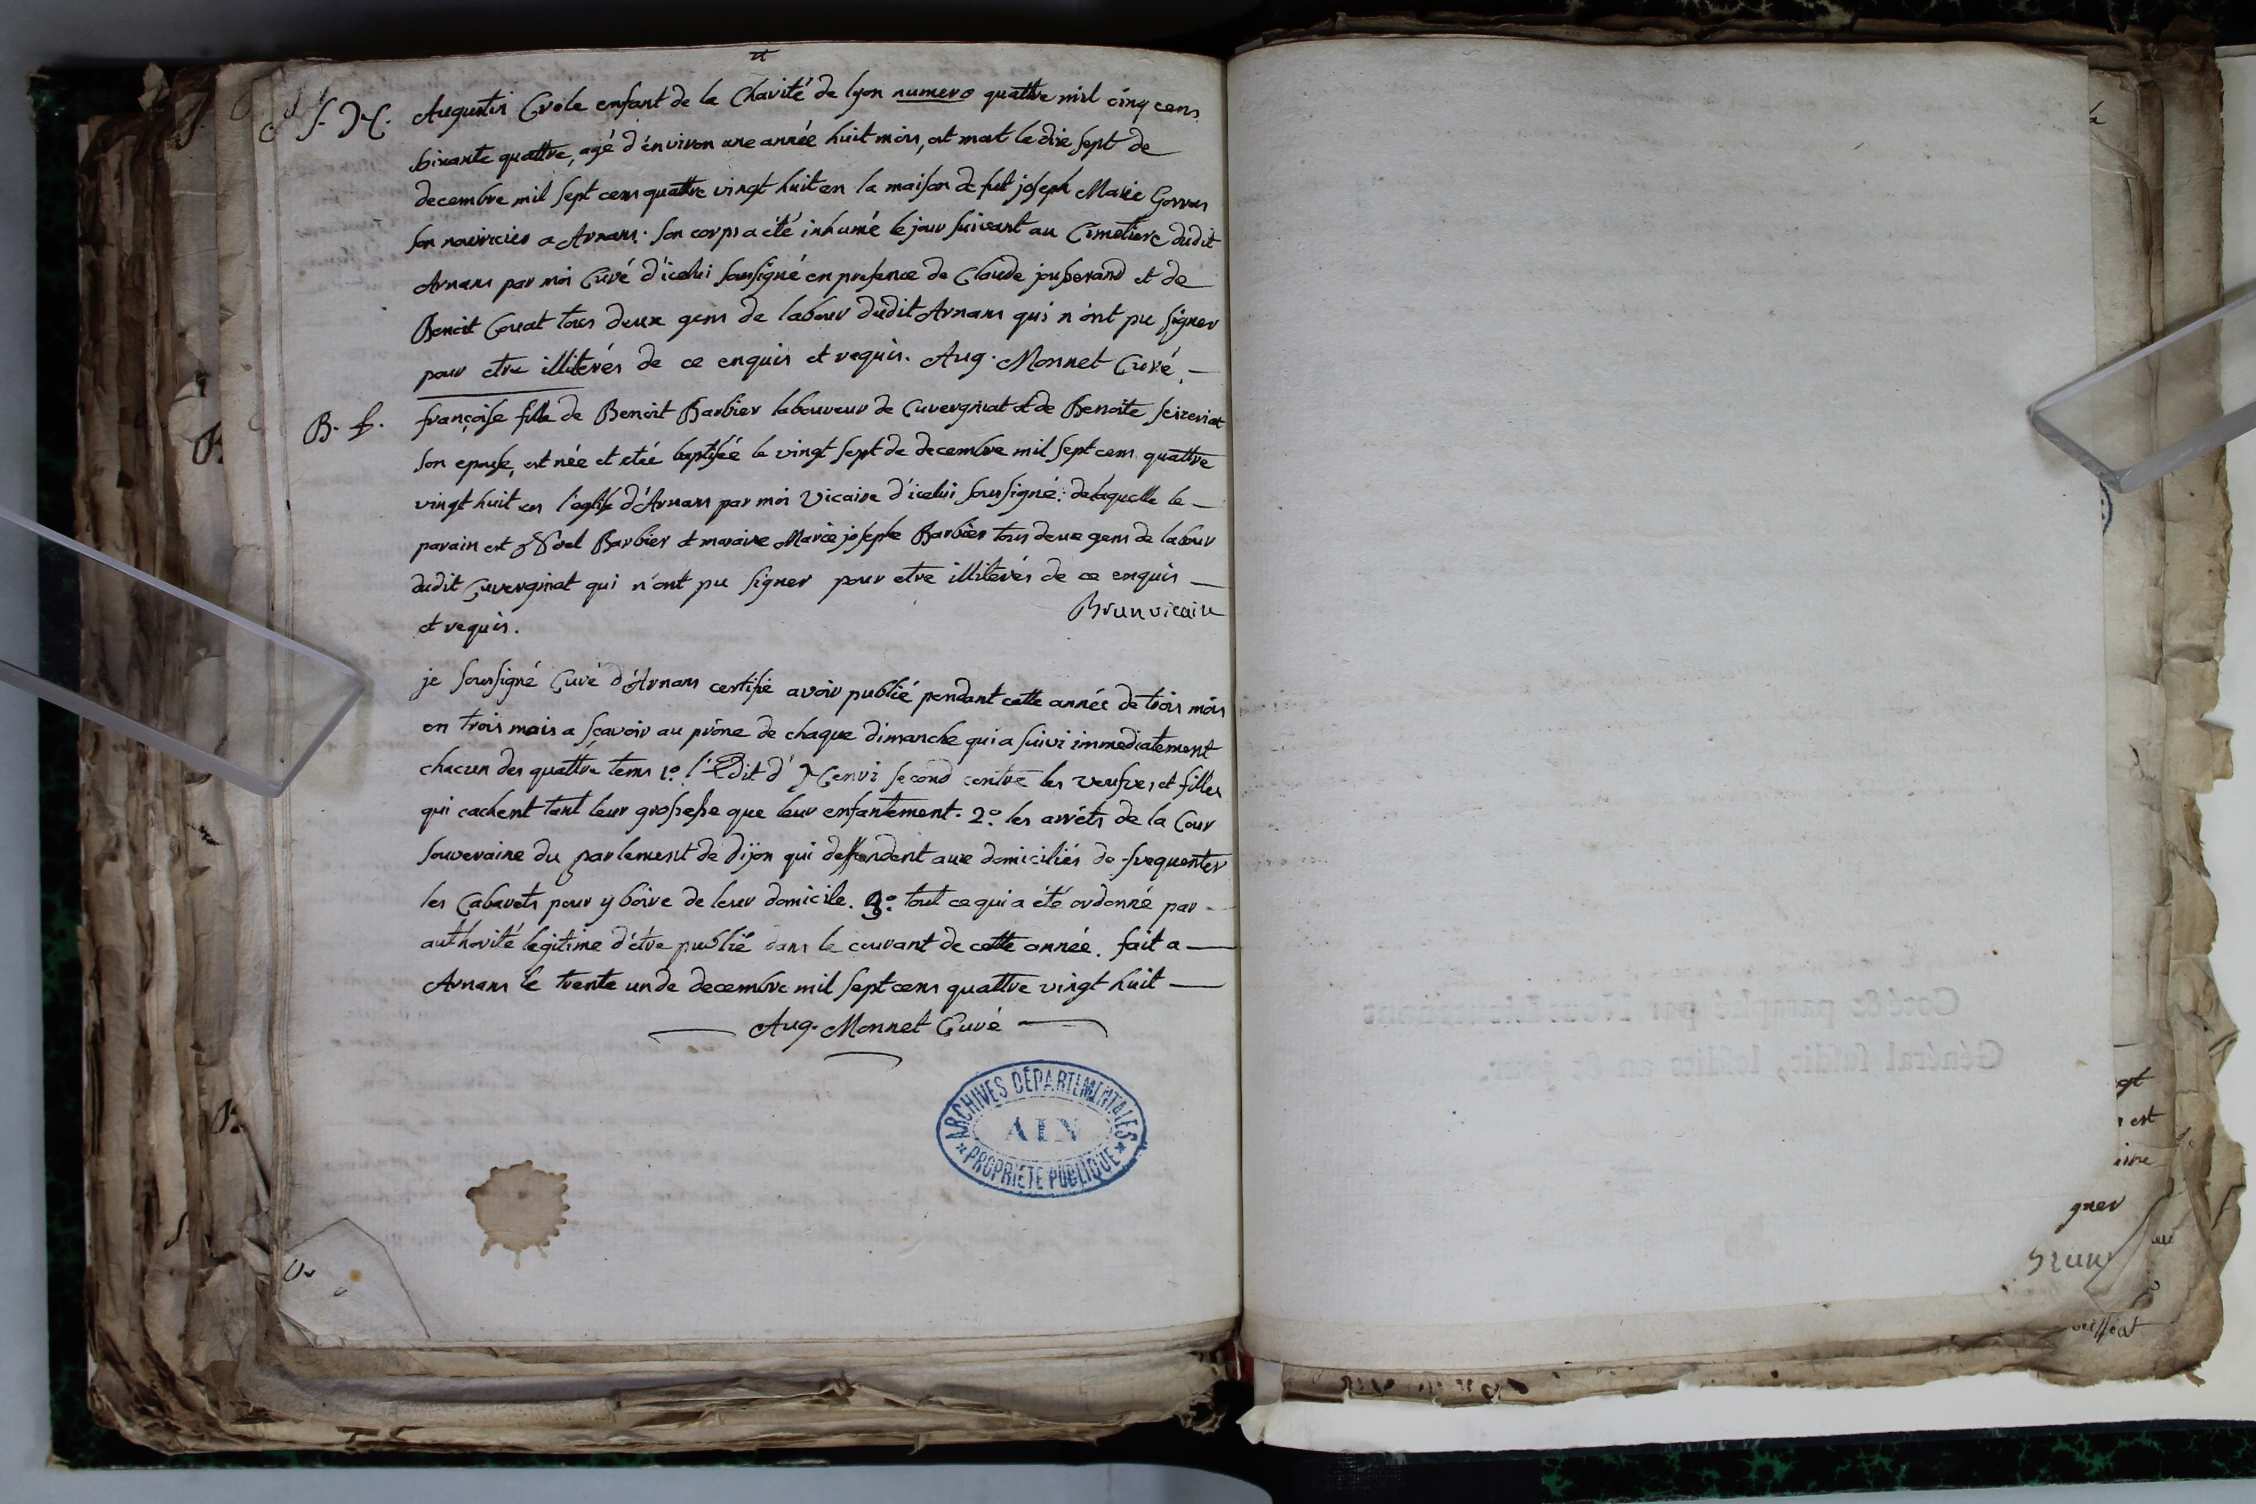 S. H. Augustin Crole enfant de la Charité de lyon numero quattre mil cinq cens
soixante quattre, agé d'énviron une année huit mois, est mort le dix sept de
decembre mil sept cens quattre vingt huit en la maison de fut joseph Marie Gorras
son nourricier a Arnans. son corps a été inhumé le jour suivant au Cimetiere dudit
Arnans par moi Curé d'icelui soussigné en presence de Claude jousserand et de
Benoit Couat tous deux gens de labour dudit Arnans qui n'ont pu signer
pour etre illiterés de ce enquis et requis. Aug. Monnet Curé.
B. f. françoise fille de Benoit Barbier laboureur de Cuvergnat et de Benoite
son epouse, est née et etée baptisée le vingt sept de decembre mil sept cens quattre
vingt huit en l'eglise d'Arnans par moi Vicaire d'icelui soussigné: de laquelle le
parain est Noel Barbier et maraine Marie josephe Barbier tous deux gens de labour
dudit Cuvergnat qui n'ont pu signer pour etre illiterés de ce enquis
et requis. Brun vicaire
je soussigné Curé d'Arnans certifie avoir publié pendant cette année de trois mois
en trois mois a sçavoir au prône de chaque dimanche qui a suivi immediatement
chacun des quattre tems 1º. l'Edit d'Henri second contre les veufves et filles
qui cachent tant leur grossesse que leur enfantement. 2º. les arrêts de la Cour
souveraine du parlement de dijon qui deffendent aux domiciliés de frequenter
les Cabarets pour y boire de leur domicile. 3º. tout ce qui a été ordonné par
authorité legitime d'être publié dans le courant de cette année. fait a
Arnans le trente un de decembre mil sept cens quattre vingt huit
Aug. Monnet Curé
ARCHIVES DÉPARTEMENTALES
AIN
PROPRIÉTÉ PUBLIQUE
est
gner